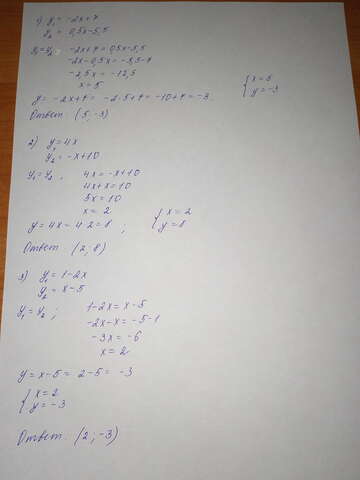 1) y₁ = -2x+7
y₂ = 0,5x-5,5
y₁=y₂; -2x+7=0,5x-5,5
-2x-0,5x = -5,5-7
-2,5x = -12,5
x = 5
y = -2x+7 = -2·5+7 = -10+7 = -3. { x=5
y=-3
Ответ: (5; -3)
2) y₁=4x
y₂=-x+10
y₁=y₂, 4x=-x+10
4x+x=10
5x=10
x=2
y=4x=4·2=8 ; { x=2
y=8
Ответ: (2; 8)
3) y₁=1-2x
y₂=x-5
y₁=y₂; 1-2x=x-5
-2x-x=-5-1
-3x=-6
x=2
y=x-5= 2-5= -3
{ x=2
y=-3
Ответ: (2; -3)